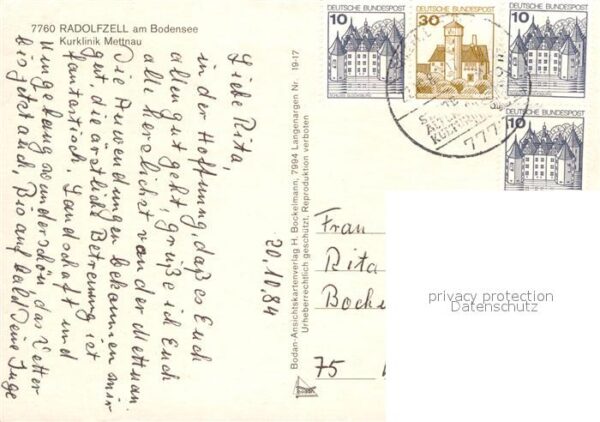 7760 RADOLFZELL am Bodensee
Kurklinik Mettnau
Liebe Rita,
in der Hoffnung, daß es Euch
allen gut geht, grüße ich Euch
alle herzlichst von der Mettnau.
Die Anwendungen bekommen mir
gut, die ärztliche Betreuung ist
fantastisch. Landschaft und
Umgebung wunderschön das Wetter
bis jetzt auch, Bis auf bald Deine Inge
20.10.84
Bodan-Ansichtskartenverlag H. Bockelmann, 7994 Langenargen Nr. 19-17
Urheberrechtlich geschützt. Reproduktion verboten
DEUTSCHE BUNDESPOST
10
DEUTSCHE BUNDESPOST
30
DEUTSCHE BUNDESPOST
10
DEUTSCHE BUNDESPOST
10
777
Frau
Rita
Bocks
75
privacy protection
Datenschutz